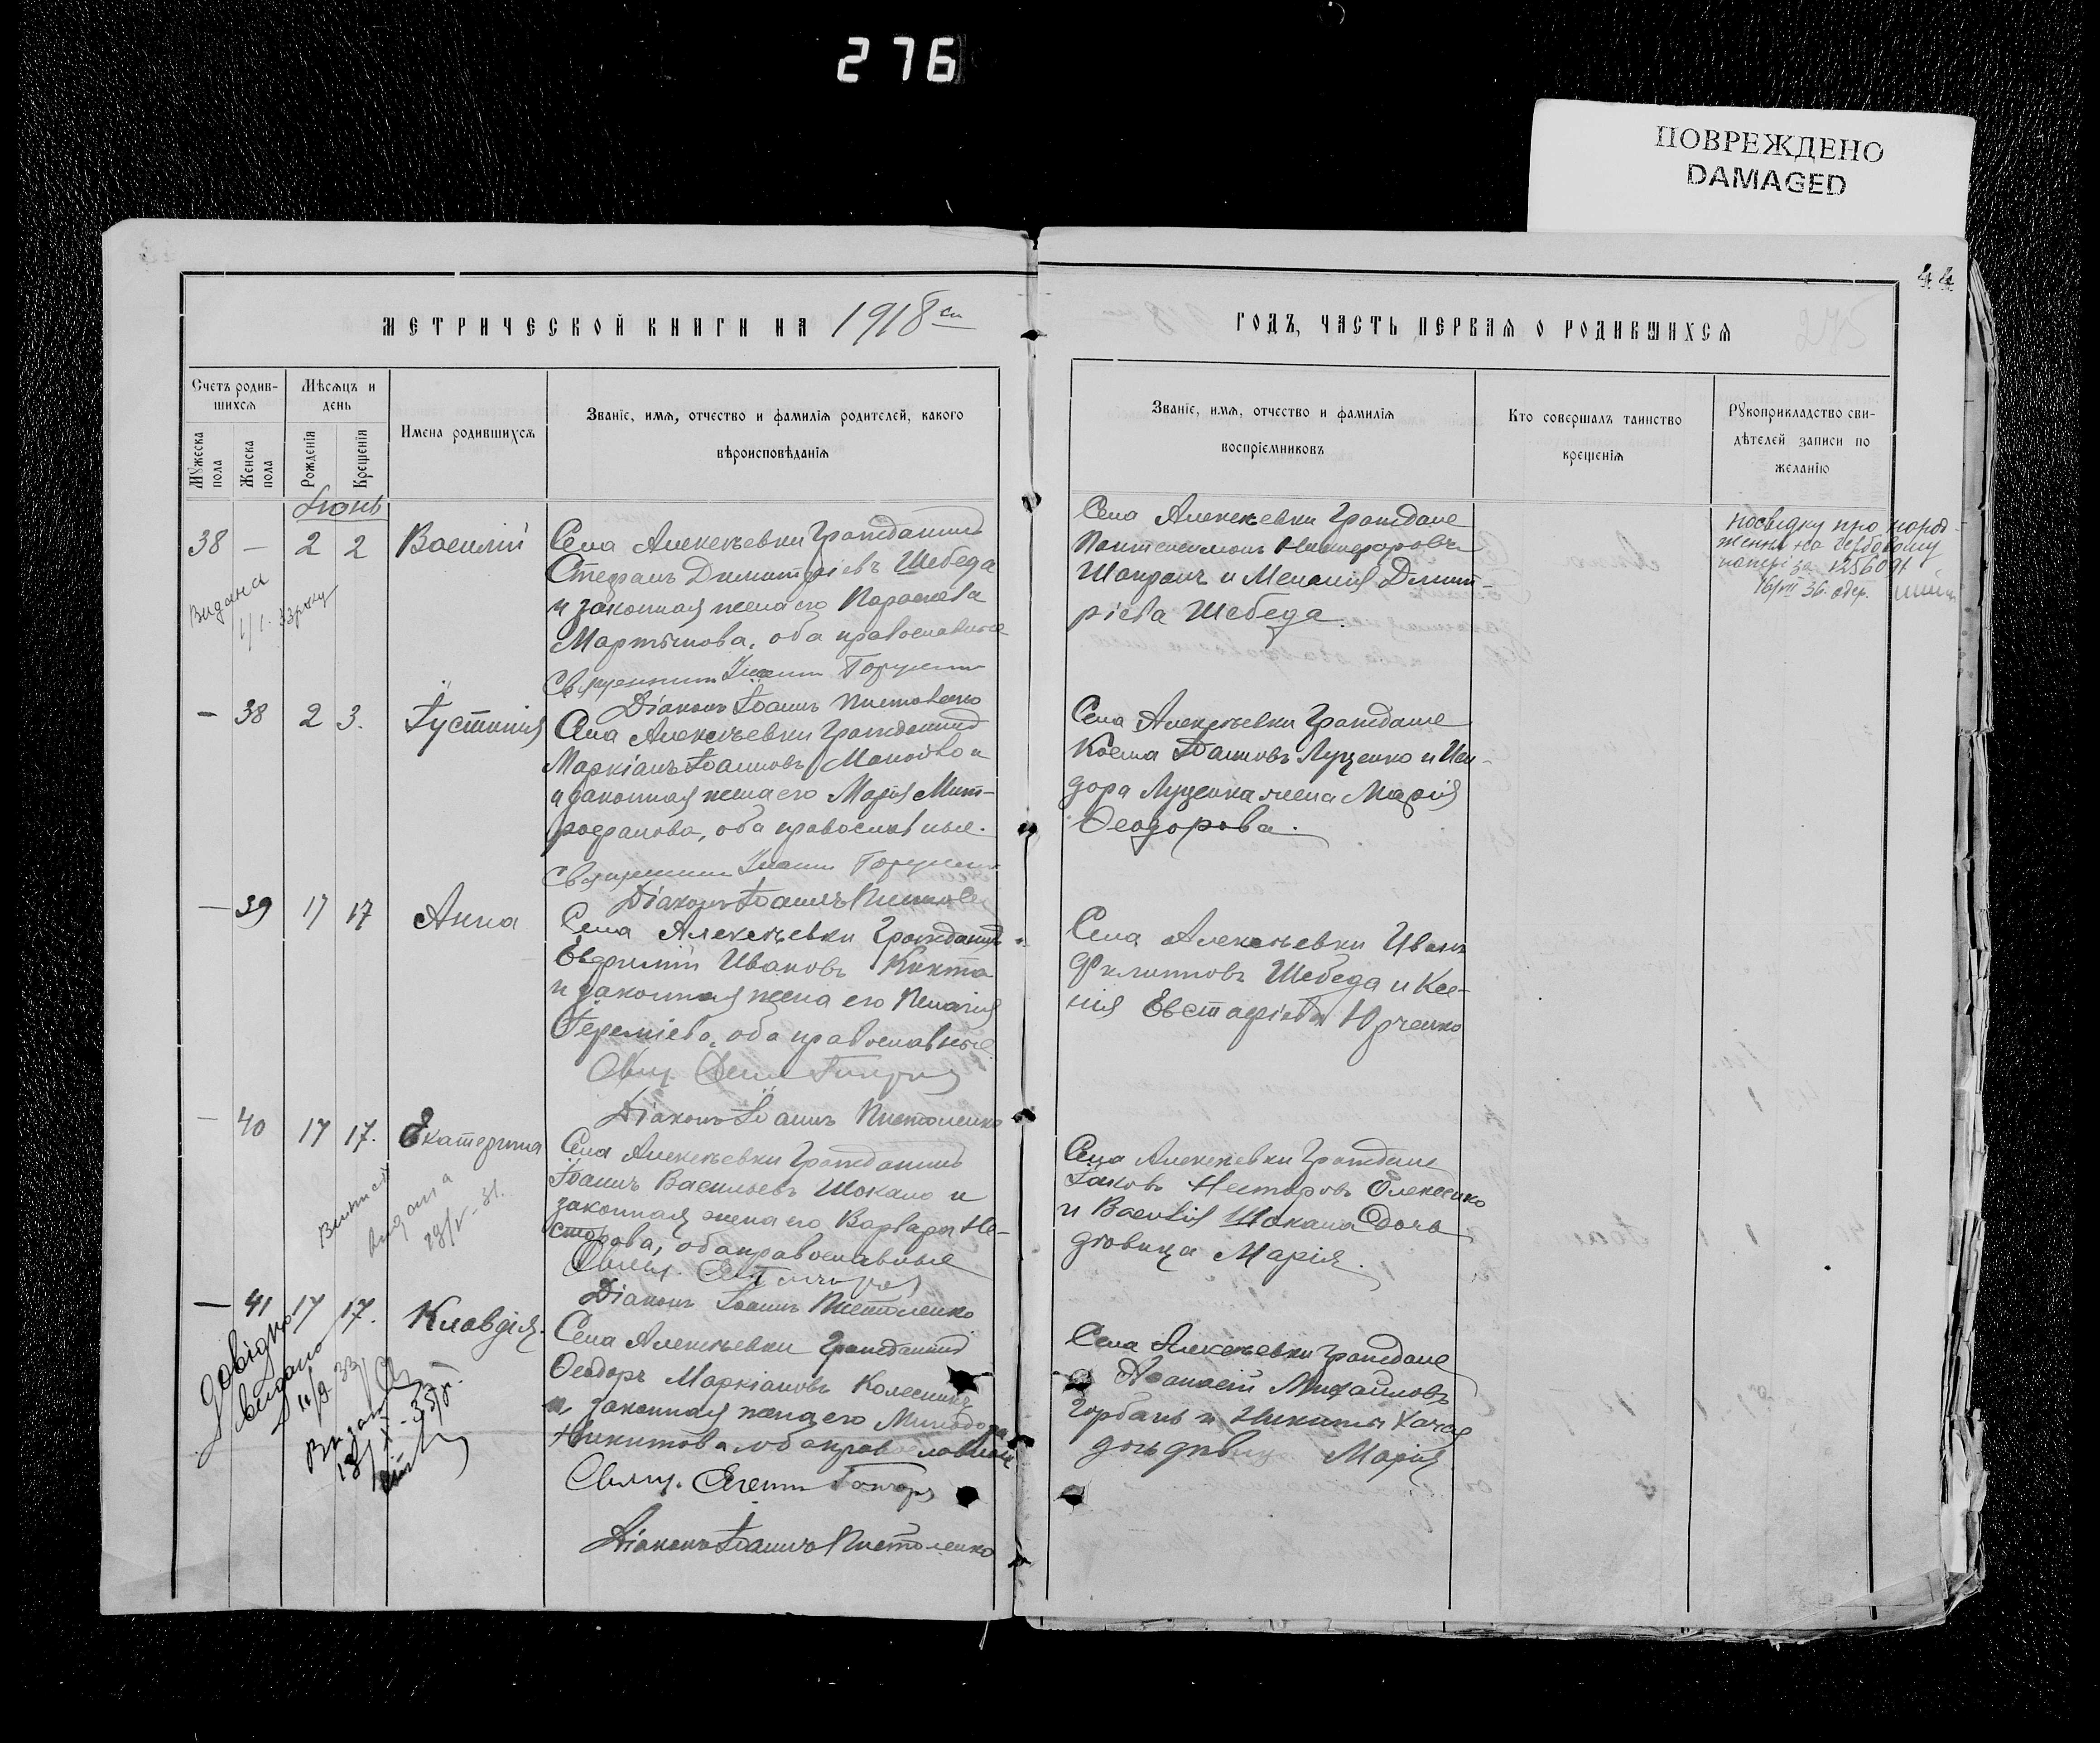 276
ПОВРЕЖДЕНО
DAMAGED
44
МЕТРИЧЕСКОЙ КНИГИ НА 1918
ГОДЪ, ЧАСТЬ ПЕРВАЯ О РОДИВШИХСЯ
275
Счетъ родив-
шихся
Мужеска пола
Женска пола
Мѣсяцъ и
день
Рожденія
Крещенія
Имена родившихся
Званіе, имя, отчество и фамилія родителей, какого
вѣроисповѣданія
Званіе, имя, отчество и фамилія
воспріемниковъ
Кто совершалъ таинство
крещенія
Рукоприкладство сви-
дѣтелей записи по
желанію
Іюнь
38 — 2 2 Василій
Села Алексѣевки Гражданинъ
Стефанъ Димитріевъ Шебеда
и законная жена его Параскева
Мартынова, оба православные
Священникъ
Діаконъ Іоаннъ Пистоленко
Села Алексѣевки Граждане
Пантелеимонъ Никифоровъ
Шапранъ и Меланія Димит-
ріева Шебеда.
посвідку про народ-
ження на гербовому
папері за 125609
16/VII 36. одер.
Видана
1/1. 33 року
— 38 2 3. Іустинія
Села Алексѣевки Гражданинъ
Маркіанъ Іоанновъ и
законная жена его Марія Мит-
рофанова, оба православные.
Священникъ
Діаконъ Іоаннъ
Села Алексѣевки Граждане
Косма Іоанновъ Луценко и Иси-
дора Луценка жена Марія
Ѳеодорова.
— 39 17 17 Анна
Села Алексѣевки Гражданинъ
Евфимій Ивановъ Кикта
и законная жена его Пелагія
Іереміева, оба православные.
Свящ.
Діаконъ Іоаннъ Пистоленко
Села Алексѣевки Иванъ
Филипповъ Шебеда и Ксе-
нія Евстафіева Юрченко
— 40 17 17. Екатерина
Села Алексѣевки Гражданинъ
Іоаннъ Васильевъ Шокало и
законная жена его Варвара Не-
сторова, оба православные
Свящ.
Діаконъ Іоаннъ Пистоленко
Села Алексѣевки Граждане
Іаковъ Несторовъ Олексенко
и Василія Шокала дочь
дѣвица Марія.
видана
29/V - 31.
— 41 17 17. Клавдія.
Села Алексѣевки Гражданинъ
Ѳеодоръ Маркіановъ Колесникъ
и законная жена его
Никитова оба православные
Свящ.
Діаконъ Іоаннъ Пистоленко
Села Алексѣевки Граждане
Аѳанасій Михайловъ
Горбань и Никиты
дочь дѣвица Марія
Довідно
видано